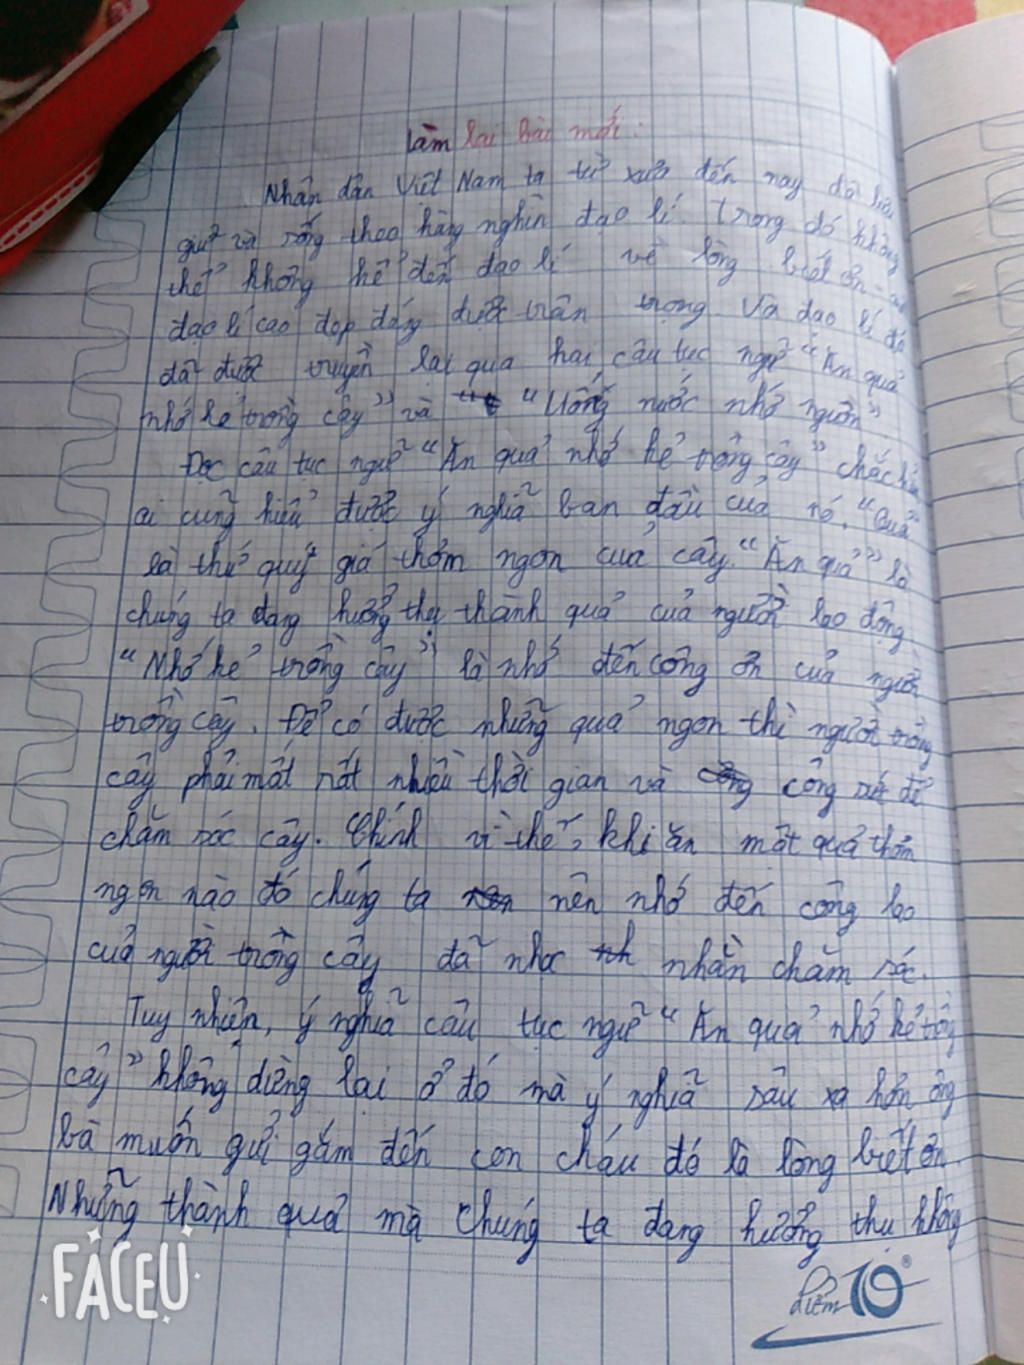 Làm lại bài mới:
Nhân dân Việt Nam ta từ xưa đến nay đã
giữ và sống theo hàng nghìn đạo lí. Trong đó không
thể không kể đến đạo lí về lòng biết ơn -
đạo lí cao đẹp đáng được trân trọng. Và đạo lí đó
đã được truyền lại qua hai câu tục ngữ "Ăn quả
nhớ kẻ trồng cây" và "Uống nước nhớ nguồn".
Đọc câu tục ngữ "Ăn quả nhớ kẻ trồng cây" chắc hẳn
ai cũng hiểu được ý nghĩa ban đầu của nó. "Quả"
là thứ quý giá thơm ngon của cây. "Ăn quả" là
chúng ta đang hưởng thụ thành quả của người lao động.
"Nhớ kẻ trồng cây" là nhớ đến công ơn của người
trồng cây. Để có được những quả ngon thì người trồng
cây phải mất rất nhiều thời gian và công sức để
chăm sóc cây. Chính vì thế, khi ăn một quả thơm
ngon nào đó chúng ta nên nhớ đến công lao
của người trồng cây đã nhọc nhằn chăm sóc.
Tuy nhiên, ý nghĩa câu tục ngữ "Ăn quả nhớ kẻ trồng
cây" không dừng lại ở đó mà ý nghĩa sâu xa hơn ông
bà muốn gửi gắm đến con cháu đó là lòng biết ơn.
Những thành quả mà chúng ta đang hưởng thụ không
FACEU
điểm 10